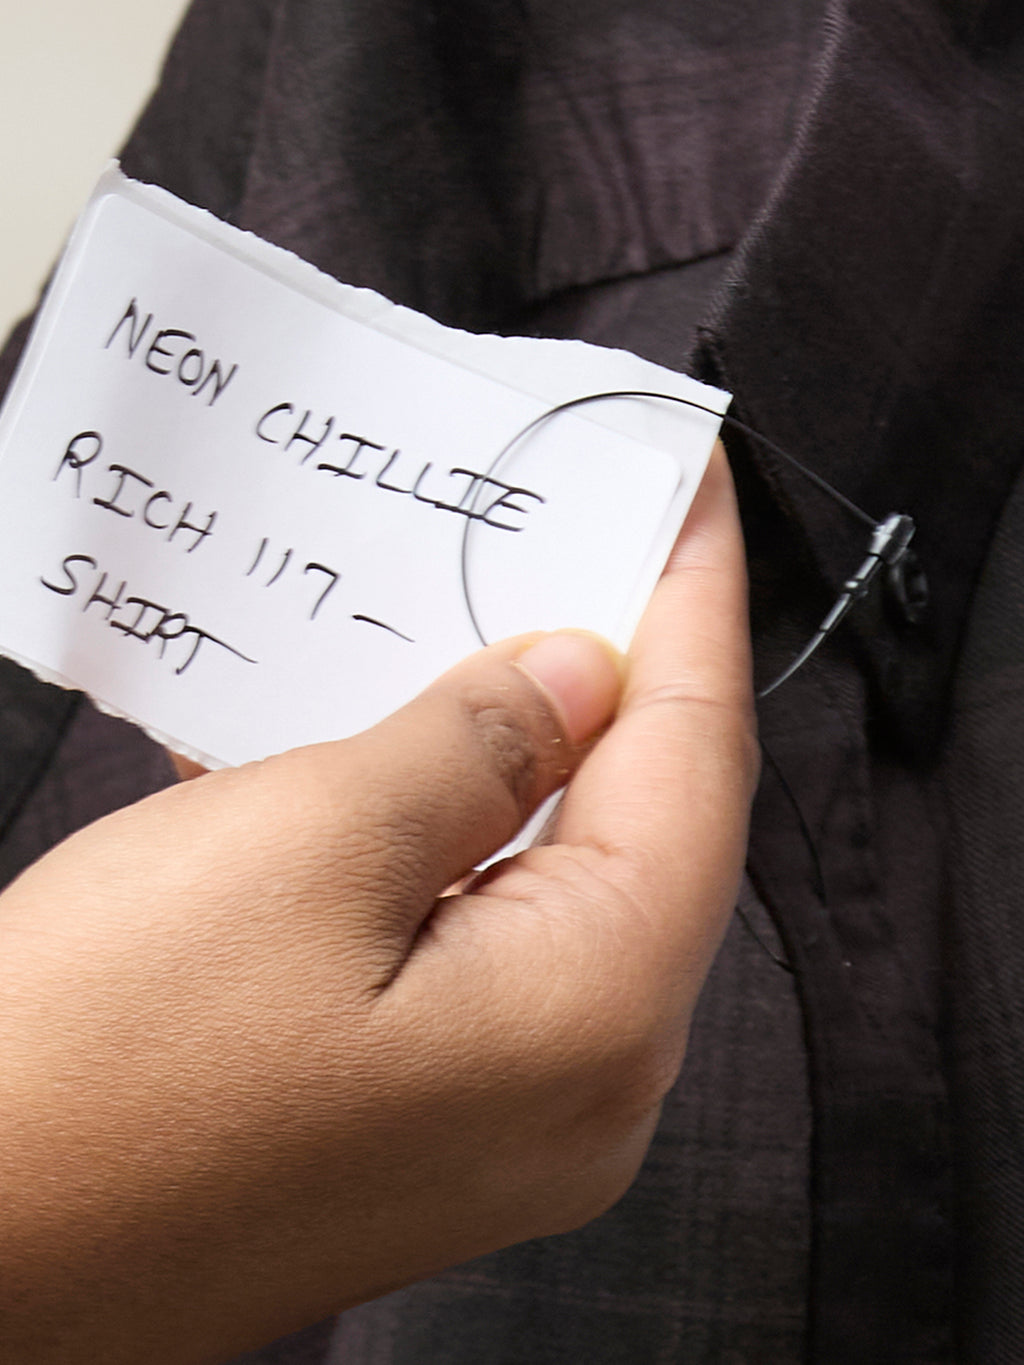 NEON CHILLIE
RICH 117 –
SHIRT